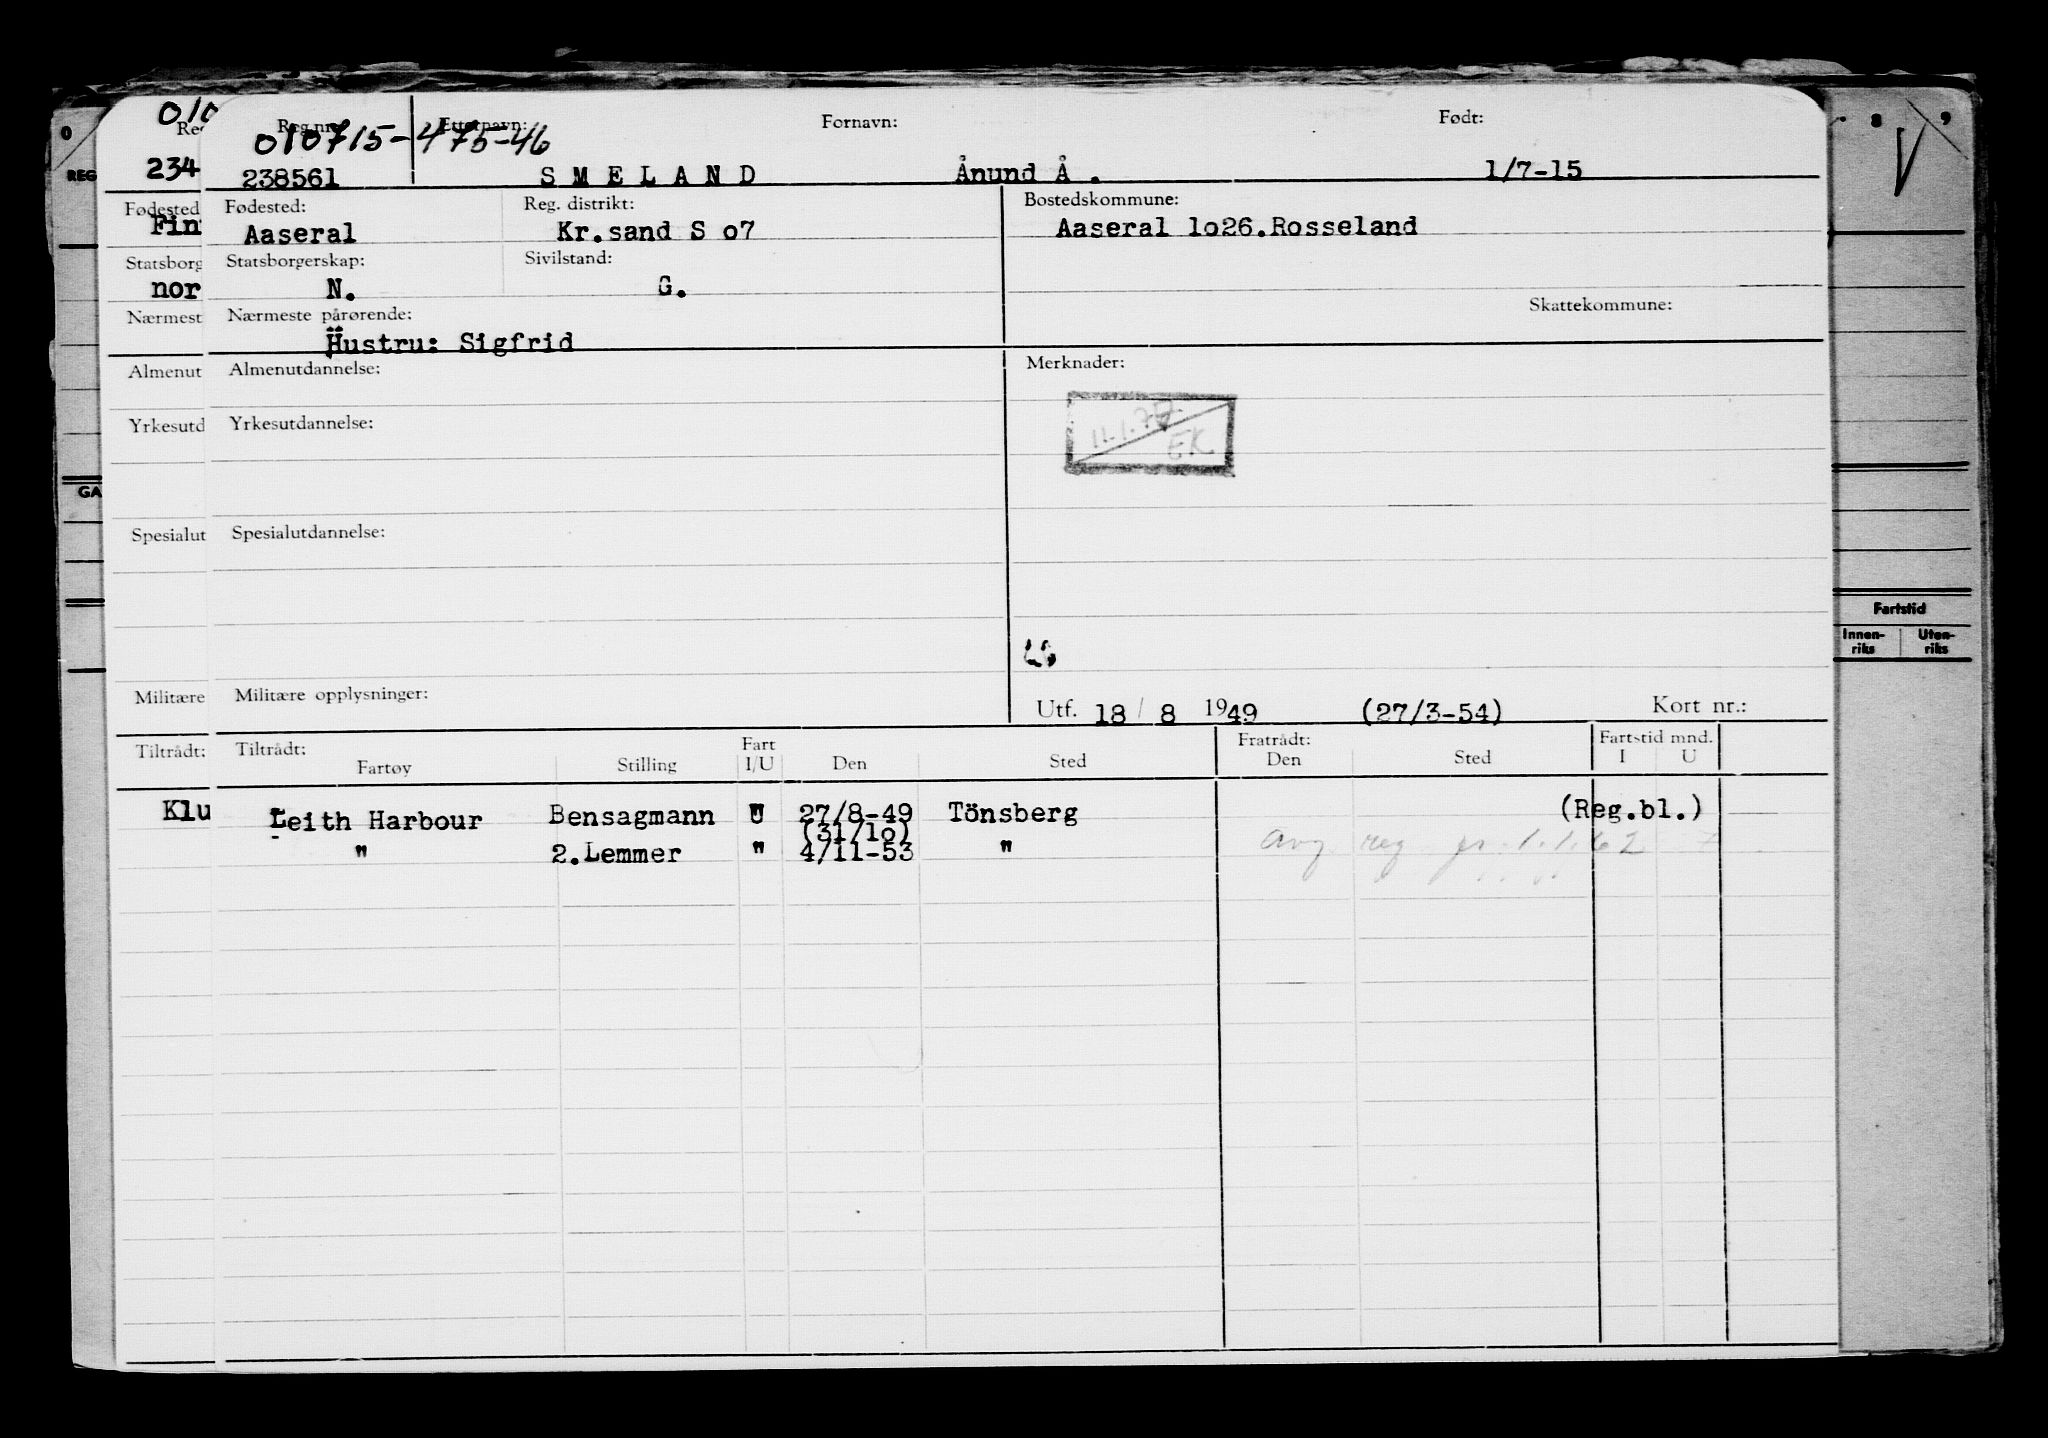 010
010715-475-46
Reg.nr. Etternavn: Fornavn: Født:
234
238561 S M E L A N D Ånund Å . 1/7-15
REG
Fødested Fødested: Reg. distrikt: Bostedskommune:
Aaseral Kr.sand S o7 Aaseral 1o26.Rosseland
Statsborg Statsborgerskap: Sivilstand:
nor N. G.
Nærmest Nærmeste pårørende: Skattekommune:
Hustru: Sigfrid
Almenut Almenutdannelse: Merknader:
11.1.77
EK
Yrkesutd Yrkesutdannelse:
GA
Spesialut Spesialutdannelse:
Fartstid
Innen-riks Uten-riks
Militære Militære opplysninger:
Utf. 18 / 8 1949 (27/3-54) Kort nr.:
Tiltrådt: Tiltrådt: Fart Fratrådt: Fartstid mnd.
Fartøy Stilling I/U Den Sted Den Sted I U
Klu Leith Harbour Bensagmann U 27/8-49 Tönsberg (Reg.bl.)
(31/1o)
" 2.Lemmer " 4/11-53 " Avg reg pr. 1.1.62